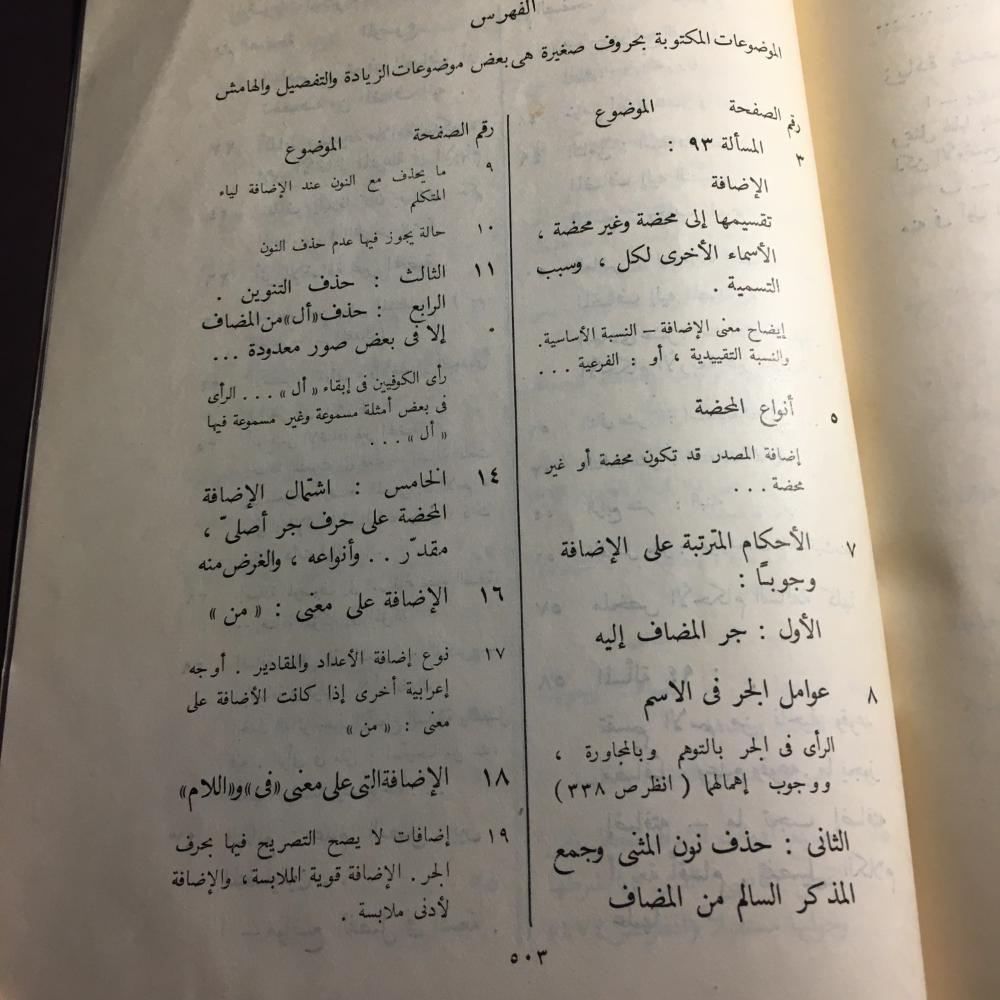 الفهرس
الموضوعات المكتوبة بحروف صغيرة هى بعض موضوعات الزيادة والتفصيل والهامش
رقم الصفحة الموضوع
٣ المسألة ٩٣ :
الإضافة
تقسيمها إلى محضة وغير محضة ،
الأسماء الأخرى لكل ، وسبب
التسمية .
إيضاح معنى الإضافة – النسبة الأساسية .
والنسبة التقييدية ، أو : الفرعية ...
٥ أنواع المحضة
إضافة المصدر قد تكون محضة أو غير
محضة ...
٧ الأحكام المترتبة على الإضافة
وجوبًا :
الأول : جر المضاف إليه
٨ عوامل الجر فى الاسم
الرأى فى الجر بالتوهم وبالمجاورة ،
ووجوب إهمالهما ( انظر ص ٣٣٨ )
الثانى : حذف نون المثنى وجمع
المذكر السالم من المضاف
رقم الصفحة الموضوع
٩ ما يحذف مع النون عند الإضافة لياء
المتكلم
١٠ حالة يجوز فيها عدم حذف النون
١١ الثالث : حذف التنوين .
الرابع : حذف «أل» من المضاف
إلا فى بعض صور معدودة ...
رأى الكوفيين فى إبقاء « أل » ... الرأى
فى بعض أمثلة مسموعة وغير مسموعة فيها
« أل » ...
١٤ الخامس : اشتمال الإضافة
المحضة على حرف جر أصلىّ ،
مقدّر .. وأنواعه ، والغرض منه
١٦ الإضافة على معنى : « من »
١٧ نوع إضافة الأعداد والمقادير . أوجه
إعرابية أخرى إذا كانت الأضافة على
معنى : « من »
١٨ الإضافة التى على معنى «فى» و«اللام»
١٩ إضافات لا يصح التصريح فيها بحرف
الجر . الإضافة قوية الملابسة ، والإضافة
لأدنى ملابسة .
٥٠٣